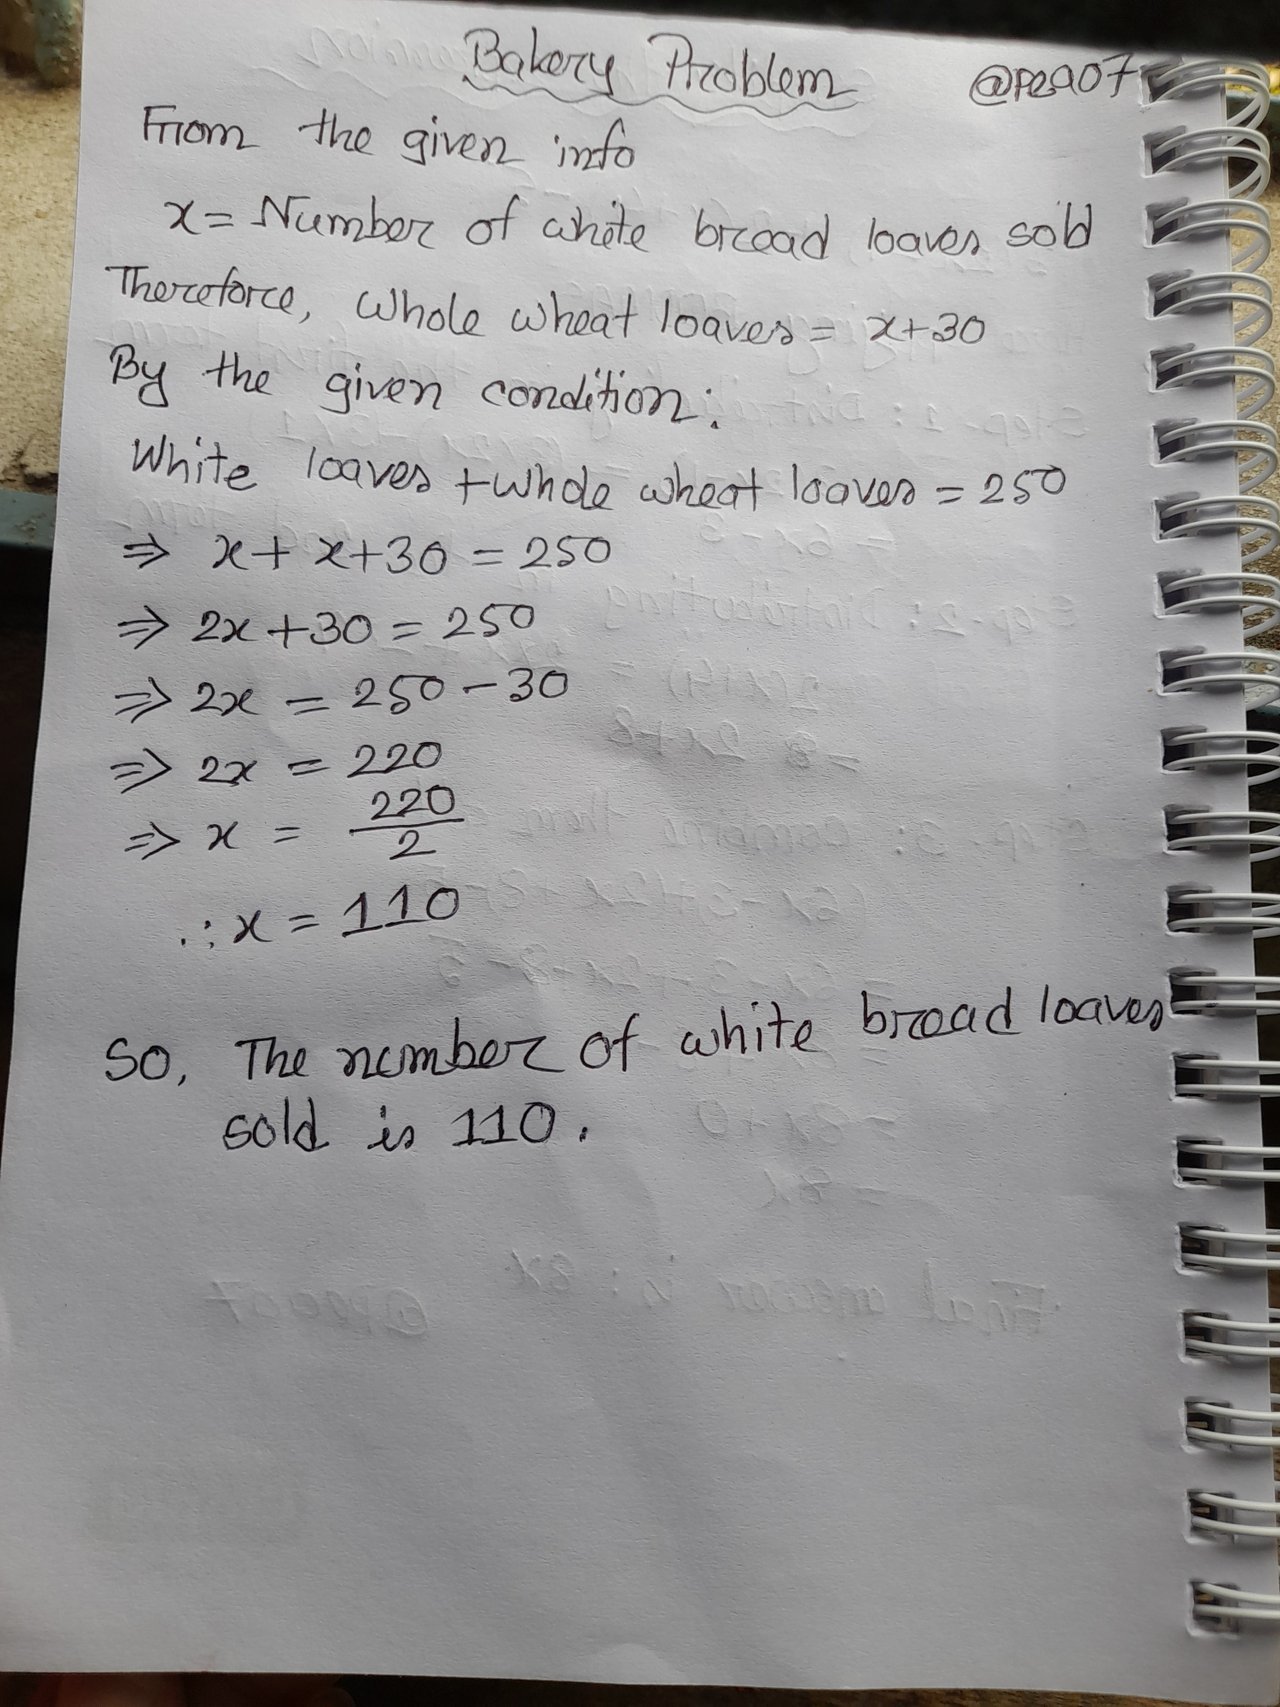 Bakery Problem @pea07
From the given info
x = Number of white broad loaves sold
Therefore, Whole wheat loaves = x+30
By the given condition:
White loaves + whole wheat loaves = 250
⇒ x + x+30 = 250
⇒ 2x +30 = 250
⇒ 2x = 250 - 30
⇒ 2x = 220
⇒ x = 220/2
∴ x = 110
So, The number of white broad loaves
sold is 110.